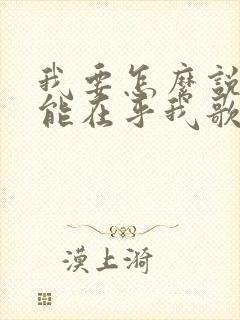 我要怎麽說
能在乎我歌
漠上漪